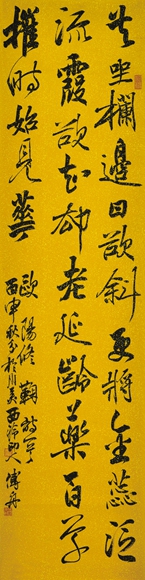 共坐欄邊日欲斜更將金蕊泛
流霞欲知却老延齡藥百草
摧時始見花
歐陽修菊詩一首
丙申秋分於川美西語工人傅舟